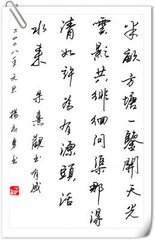 半畝方塘一鑒開天光
雲影共徘徊問渠那得
清如許為有源頭活
水來 朱熹觀書有感
二〇〇八年元旦 楊 書